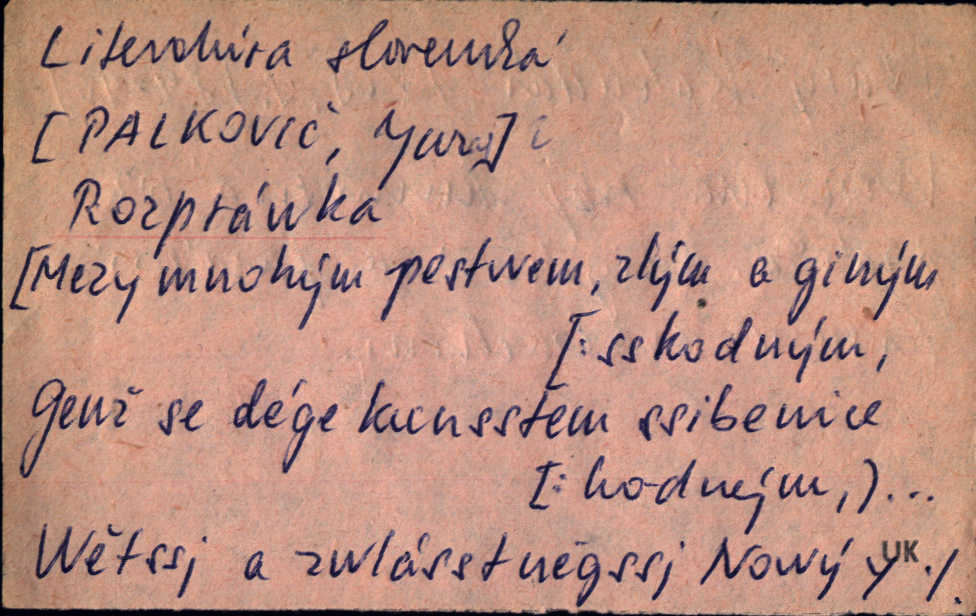 Literatúra slovenská
[PALKOVIČ, Juraj]
Rozprávka
[Mezy mnohým pestwem, zlým a giným
[: sskodným,
Genž se dége kunsstem ssibenice
[: hodným,)...
Wětssj a zwlásstněgssj Nowý y./.
UK